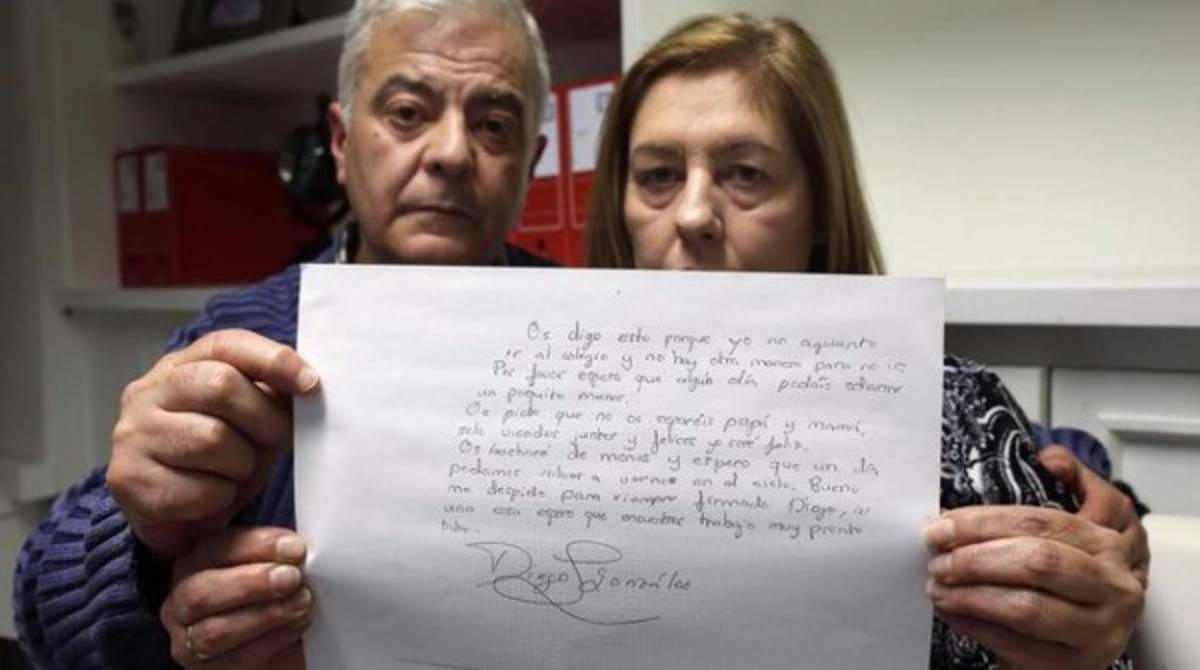 Os digo esto porque yo no aguanto
ir al colegio y no hay otra manera para no ir.
Por favor espero que algún día podáis odiarme
un poquito menos.
Os pido que no os separéis papá y mamá,
solo viendoos juntos y felices yo seré feliz.
Os echaré de menos y espero que un día
podamos volver a vernos en el cielo. Bueno
me despido para siempre firmado Diego, a
una cosa espero que encuentres trabajo muy pronto
Diego González